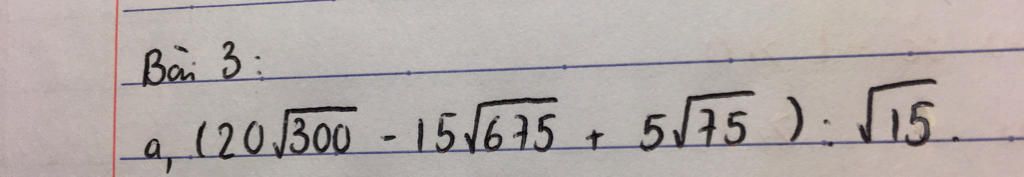 Bài 3:
a, (20√300 - 15√675 + 5√75) : √15.